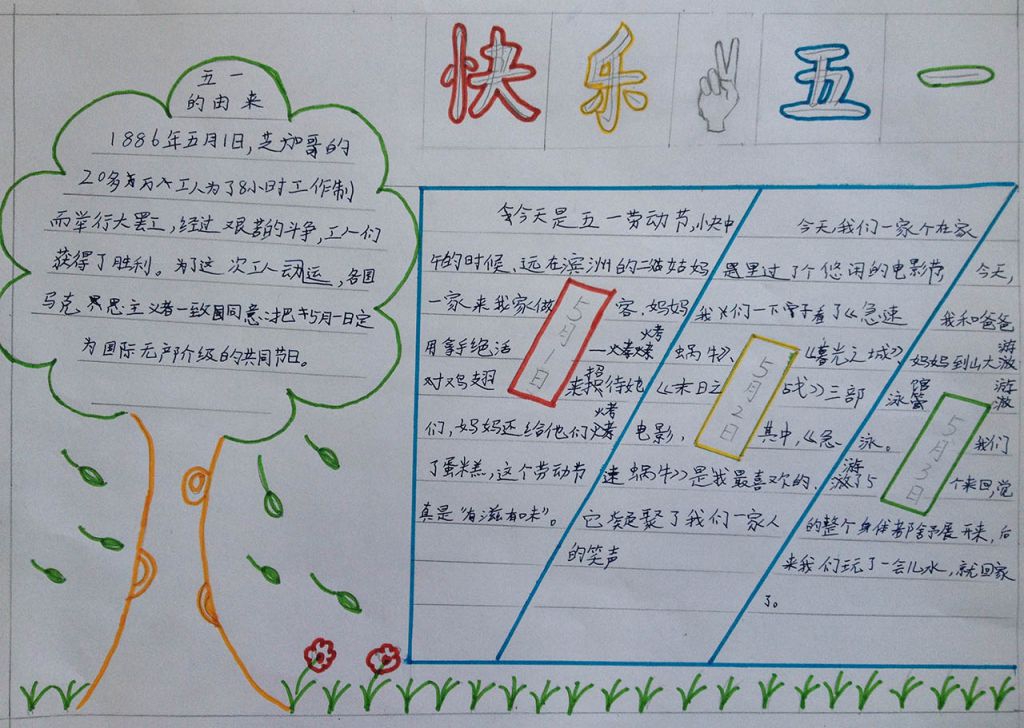 快乐 五一
五一
的由来
1886年五月1日,芝加哥的
20多万工人为了8小时工作制
而举行大罢工,经过艰苦的斗争,工人们
获得了胜利。为了这次工人动运,各国
马克思主义者一致同意把5月一日定
为国际无产阶级的共同节日。
今天是五一劳动节,快中
午的时候、远在滨洲的二姑姑妈
一家来我家做客,妈妈
用拿手绝活一烤
对鸡翅来招待她
们,妈妈还给他们烤
了蛋糕,这个劳动节
真是“有滋有味”。
5月1日
今天,我们一家个在家
里过了个悠闲的电影节
我们一下子看了《急速
蜗牛》、《暮光之城》、
《末日之战》三部
电影,其中,《急
速蜗牛》是我最喜欢的,
它凝聚了我们一家人
的笑声
5月2日
今天,
我和爸爸
妈妈到山大游
泳馆游
泳。我们
游了5个来回,觉
的整个身体都舒展开来,后
来我们玩了一会儿水,就回家
了。
5月3日